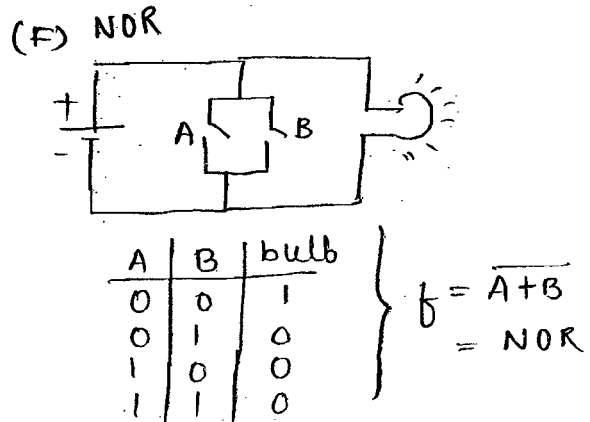 (F) NOR
+
-
A B
A B bulb
0 0 1
0 1 0
1 0 0
1 1 0
f = \overline{A+B}
= NOR